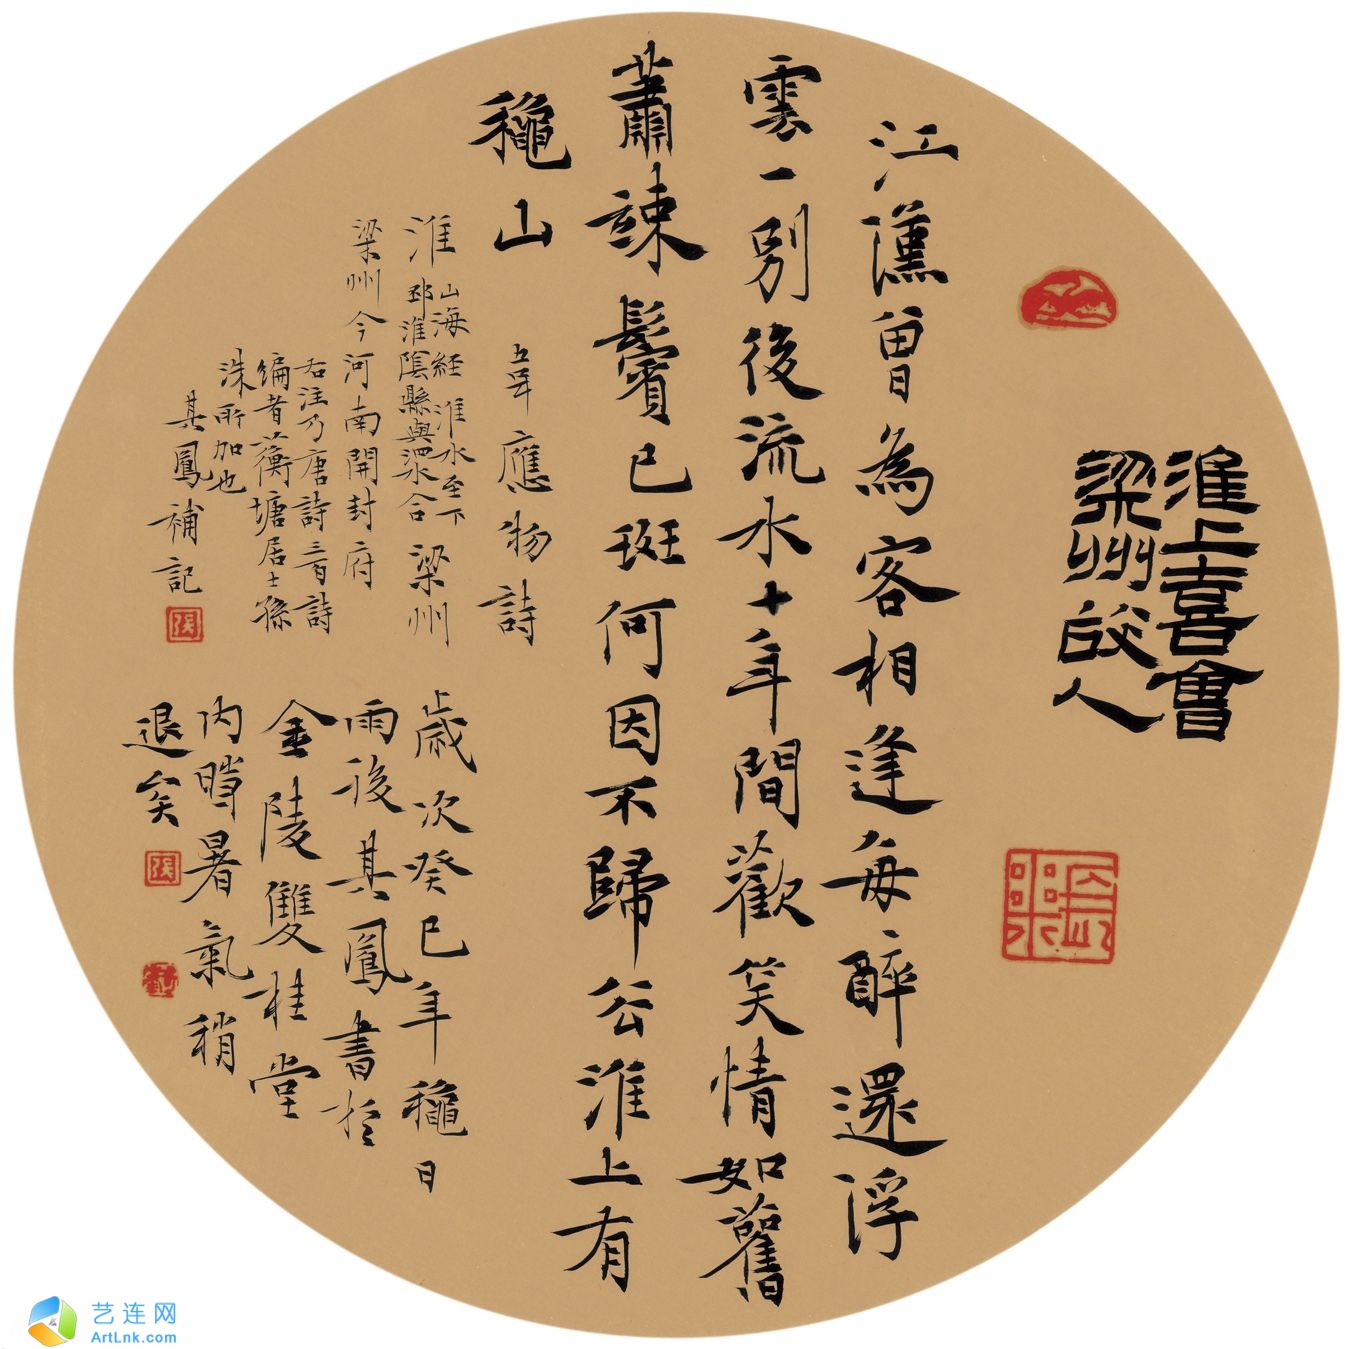 淮上喜會
梁州故人
江漢曾為客相逢每醉還浮
雲一別後流水十年間歡笑情如舊
蕭疎鬢已斑何因不歸公淮上有
穐山
韋應物詩
淮
山海经淮水至下
邳淮陰縣與泗水合
梁州
梁州今河南開封府
右注乃唐詩三百詩
编者蘅塘居士孫
洙所加也
其鳳補記
張
歲次癸巳年穐日
雨後其鳳書於
金陵雙桂堂
内時暑氣稍
退矣
張
艺连网
ArtLnk.com